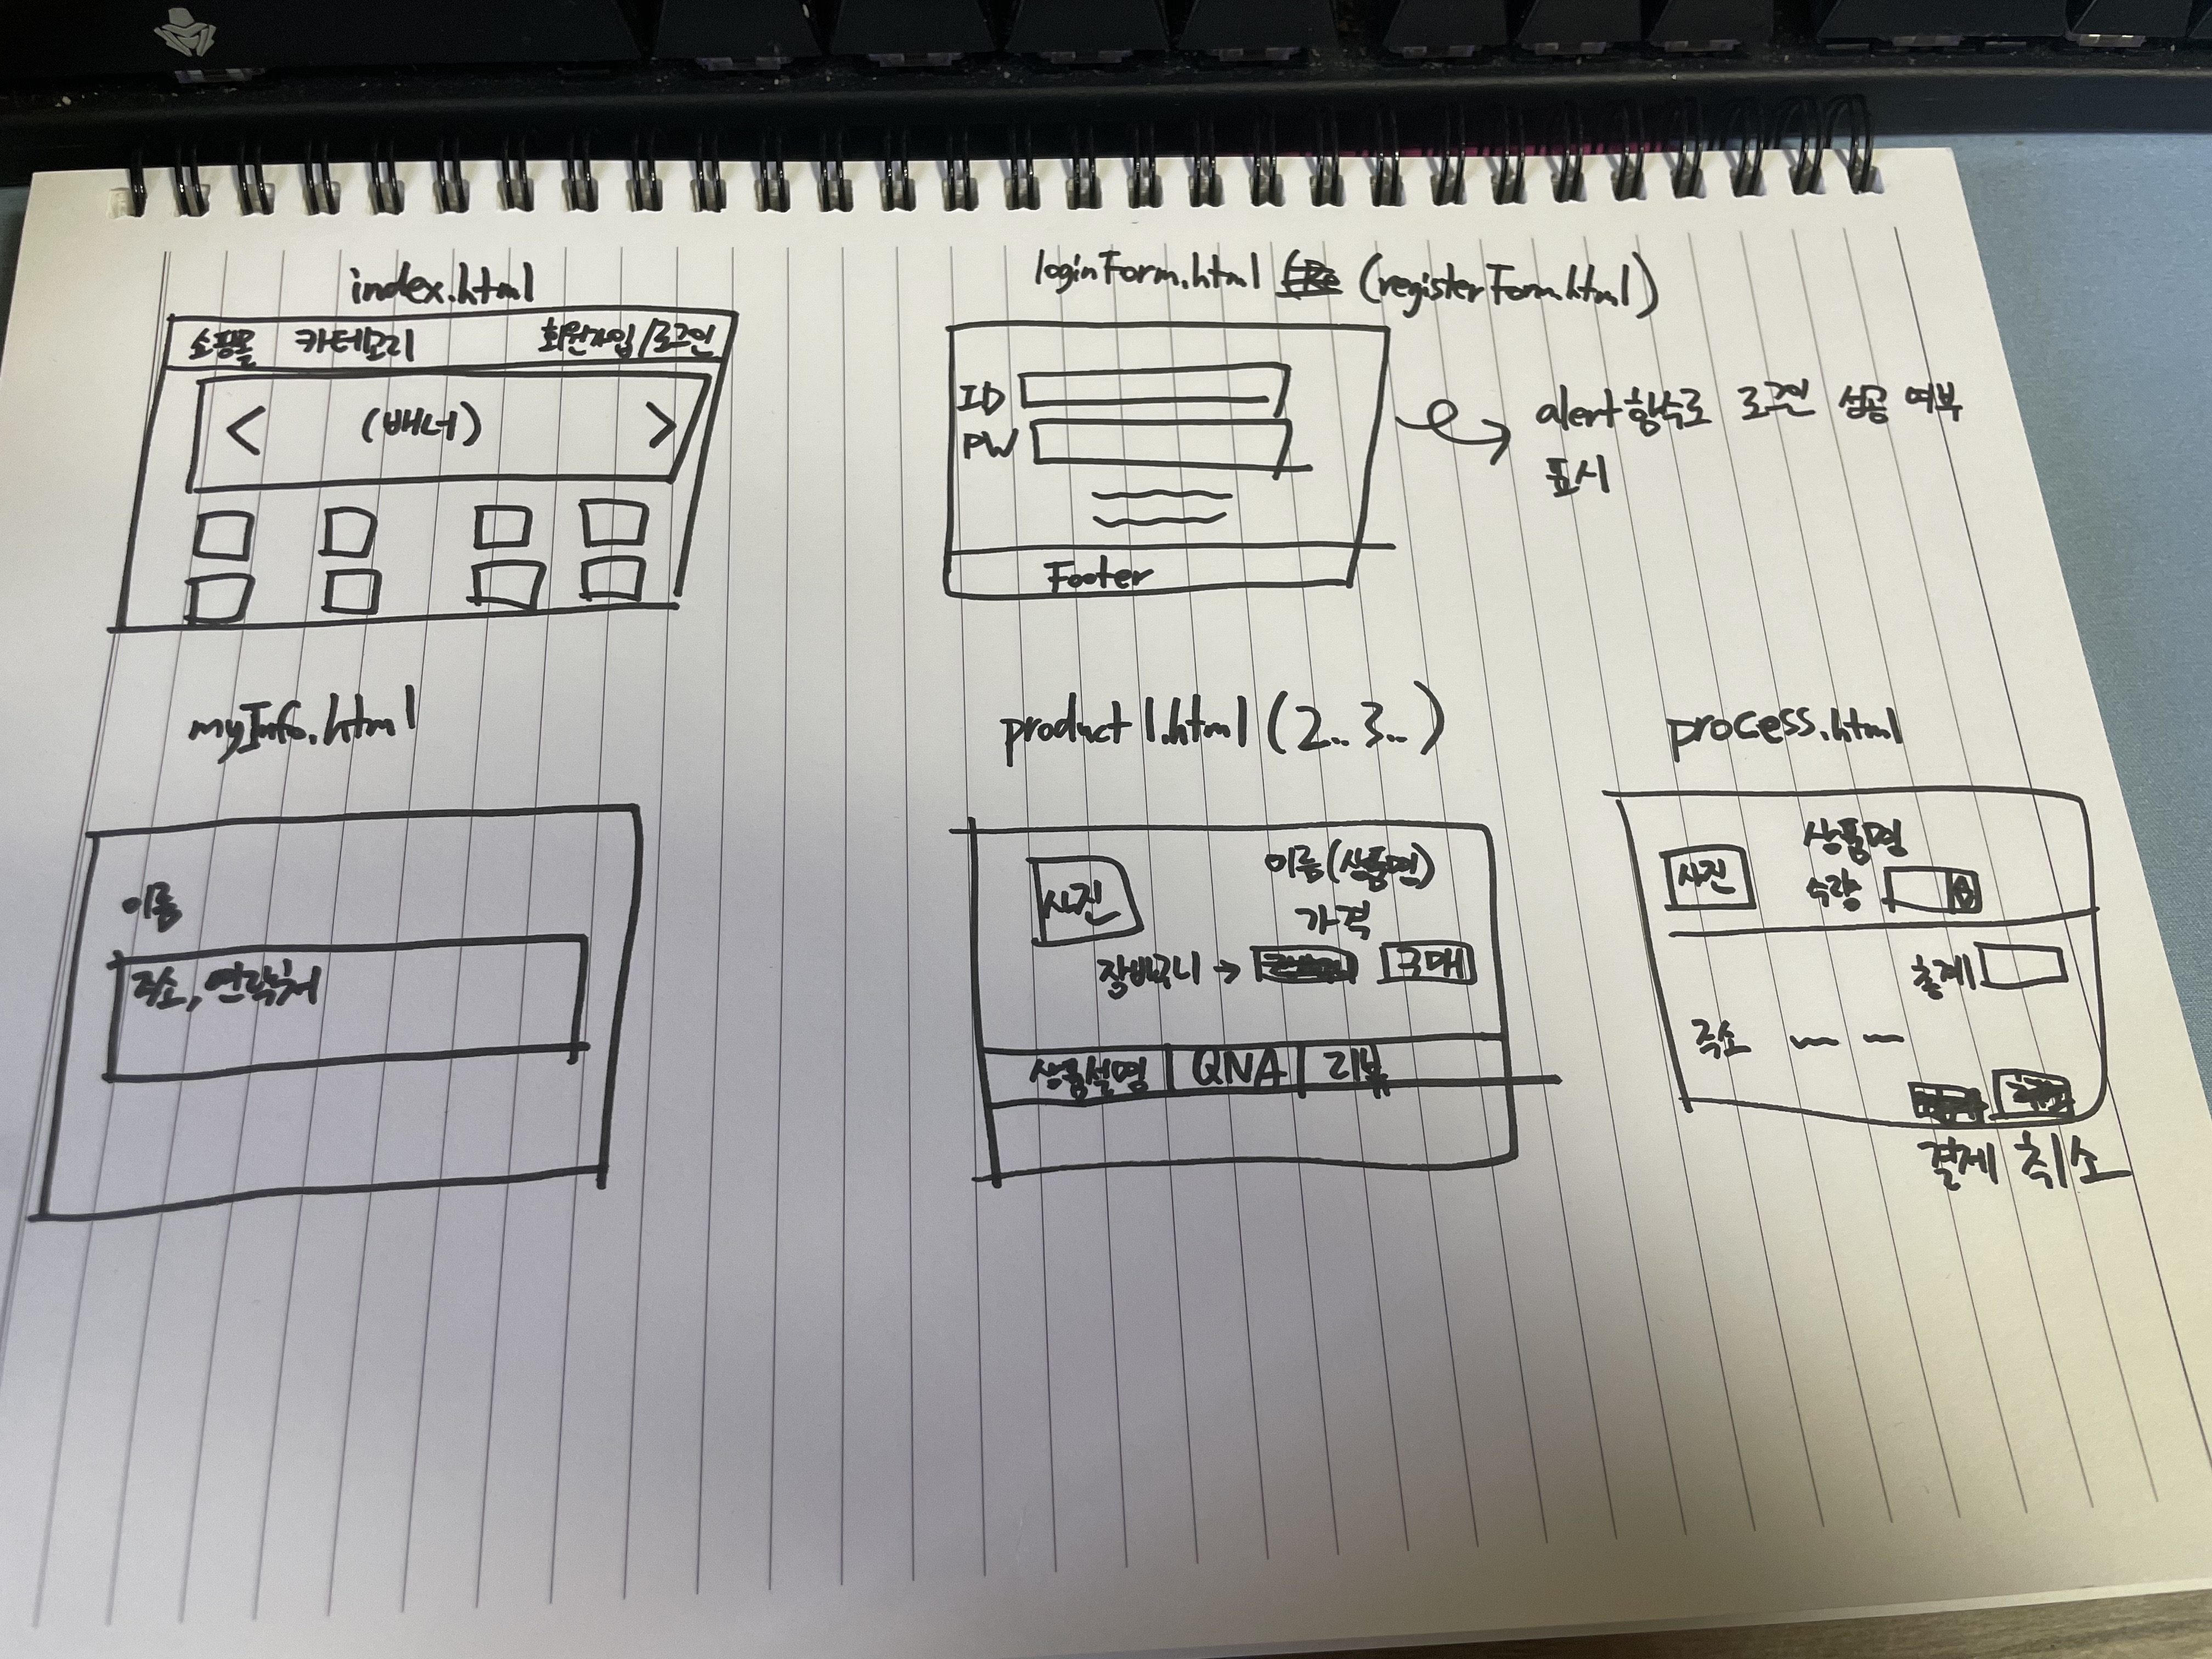 index.html
쇼핑몰 카테고리 회원가입/로그인
< (배너) >
loginForm.html (registerForm.html)
ID
PW
Footer
alert 함수로 로그인 성공 여부
표시
myInfo.html
이름
주소, 연락처
product1.html (2.. 3..)
사진
이름(상품명)
가격
장바구니 → 구매
상품설명 QNA 리뷰
process.html
사진
상품명
수량
총계
주소
결제 취소